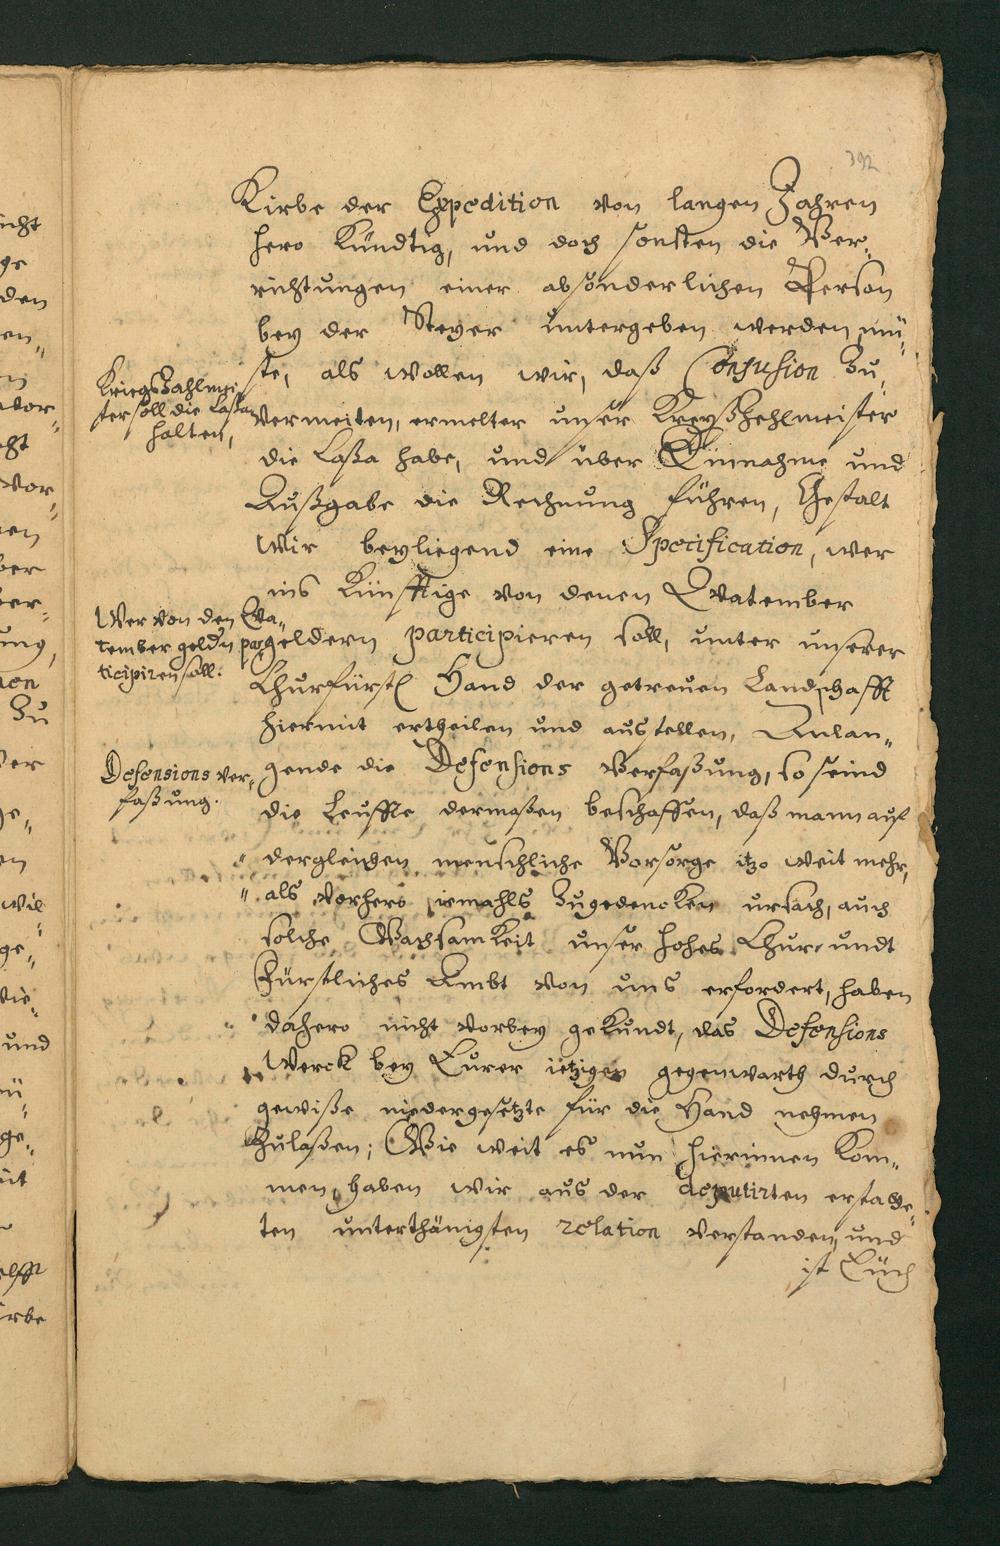 392
Kirbe der Expedition von langen Jahren
hero kündtig, und doch sonsten die Ver-
richtungen einer absonderlichen Person
bey der Steyer untergeben werden mü-
ste, als wollen wir, daß Confusion zu
vermeiten, ermelter unser Kreyßzehlmeister
die Caßa habe, und über Einnahme und
Außgabe die Rechnung führen, Gestalt
Wir beyliegend eine Specification, wer
ins Künfftige von denen Qvatember
geldern participieren soll, unter unserer
Churfürstl Hand der getreuen Landschafft
hiermit ertheilen und austellen, Anlan„
gende die Defensions Verfaßung, so seind
die Leuffte dermaßen beschaffen, daß mann auf
dergleichen menschliche Vorsorge itzo weit mehr,
als vorhero iemahls zugedencken ursach, auch
solche Wachsamkeit unser hohes Chur- undt
Fürstliches Ambt von uns erfordert, haben
dahero nicht vorbey gekundt, das Defensions
Werck bey Eurer ietzigen gegenwarth durch
gewiße niedergesetzte für die Hand nehmen
zulaßen; Wie weit es nun hierinnen kom„
men, haben wir aus der deputirten erstatte„
ten unterthänigsten relation verstanden, und
ist Euch
KriegsZahlmei
ster soll die Caßa
halten,
Wer von den Qva„
tember geldn par
ticipiren soll.
Defensions ver„
faßung.